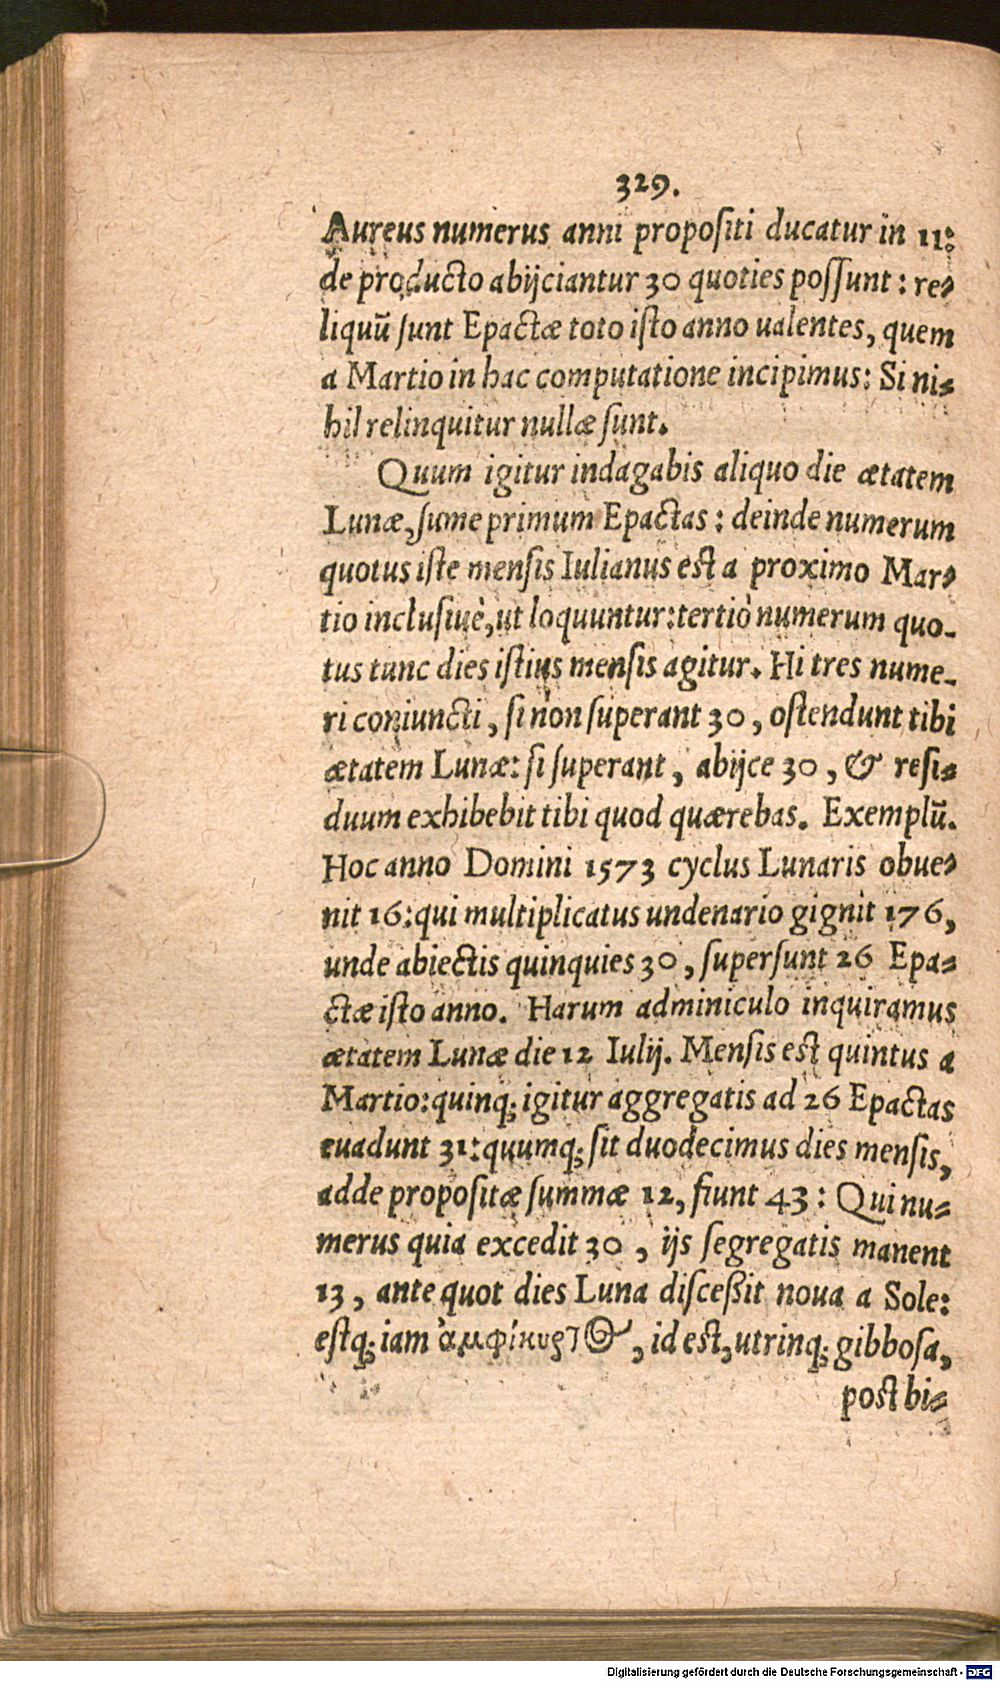 329.
Aureus numerus anni propoſiti ducatur in 11:
de producto abijciantur 30 quoties poſſunt: re-
liquũ ſunt Epactæ toto iſto anno ualentes, quem
a Martio in hac computatione incipimus: Si ni-
hil relinquitur nullæ ſunt.
Quum igitur indagabis aliquo die ætatem
Lunæ, ſume primum Epactas: deinde numerum
quotus iſte menſis Iulianus est a proximo Mar-
tio incluſiuè, ut loquuntur: tertiò numerum quo-
tus tunc dies iſtius menſis agitur. Hi tres nume-
ri coniuncti, ſi non ſuperant 30, oſtendunt tibi
ætatem Lunæ: ſi ſuperant, abijce 30, & reſi-
duum exhibebit tibi quod quærebas. Exemplũ.
Hoc anno Domini 1573 cyclus Lunaris obue-
nit 16: qui multiplicatus undenario gignit 176,
unde abiectis quinquies 30, ſuperſunt 26 Epa-
ctæ iſto anno. Harum adminiculo inquiramus
ætatem Lunæ die 12 Iulij. Menſis est quintus a
Martio: quinq; igitur aggregatis ad 26 Epactas
euadunt 31: quumq; ſit duodecimus dies menſis,
adde propoſitæ ſummæ 12, fiunt 43: Qui nu-
merus quia excedit 30, ijs ſegregatis manent
13, ante quot dies Luna diſceßit noua a Sole:
estq; iam ἀμφίκυρτος, id est, utrinq; gibboſa,
post bi-
Digitalisierung gefördert durch die Deutsche Forschungsgemeinschaft - DFG